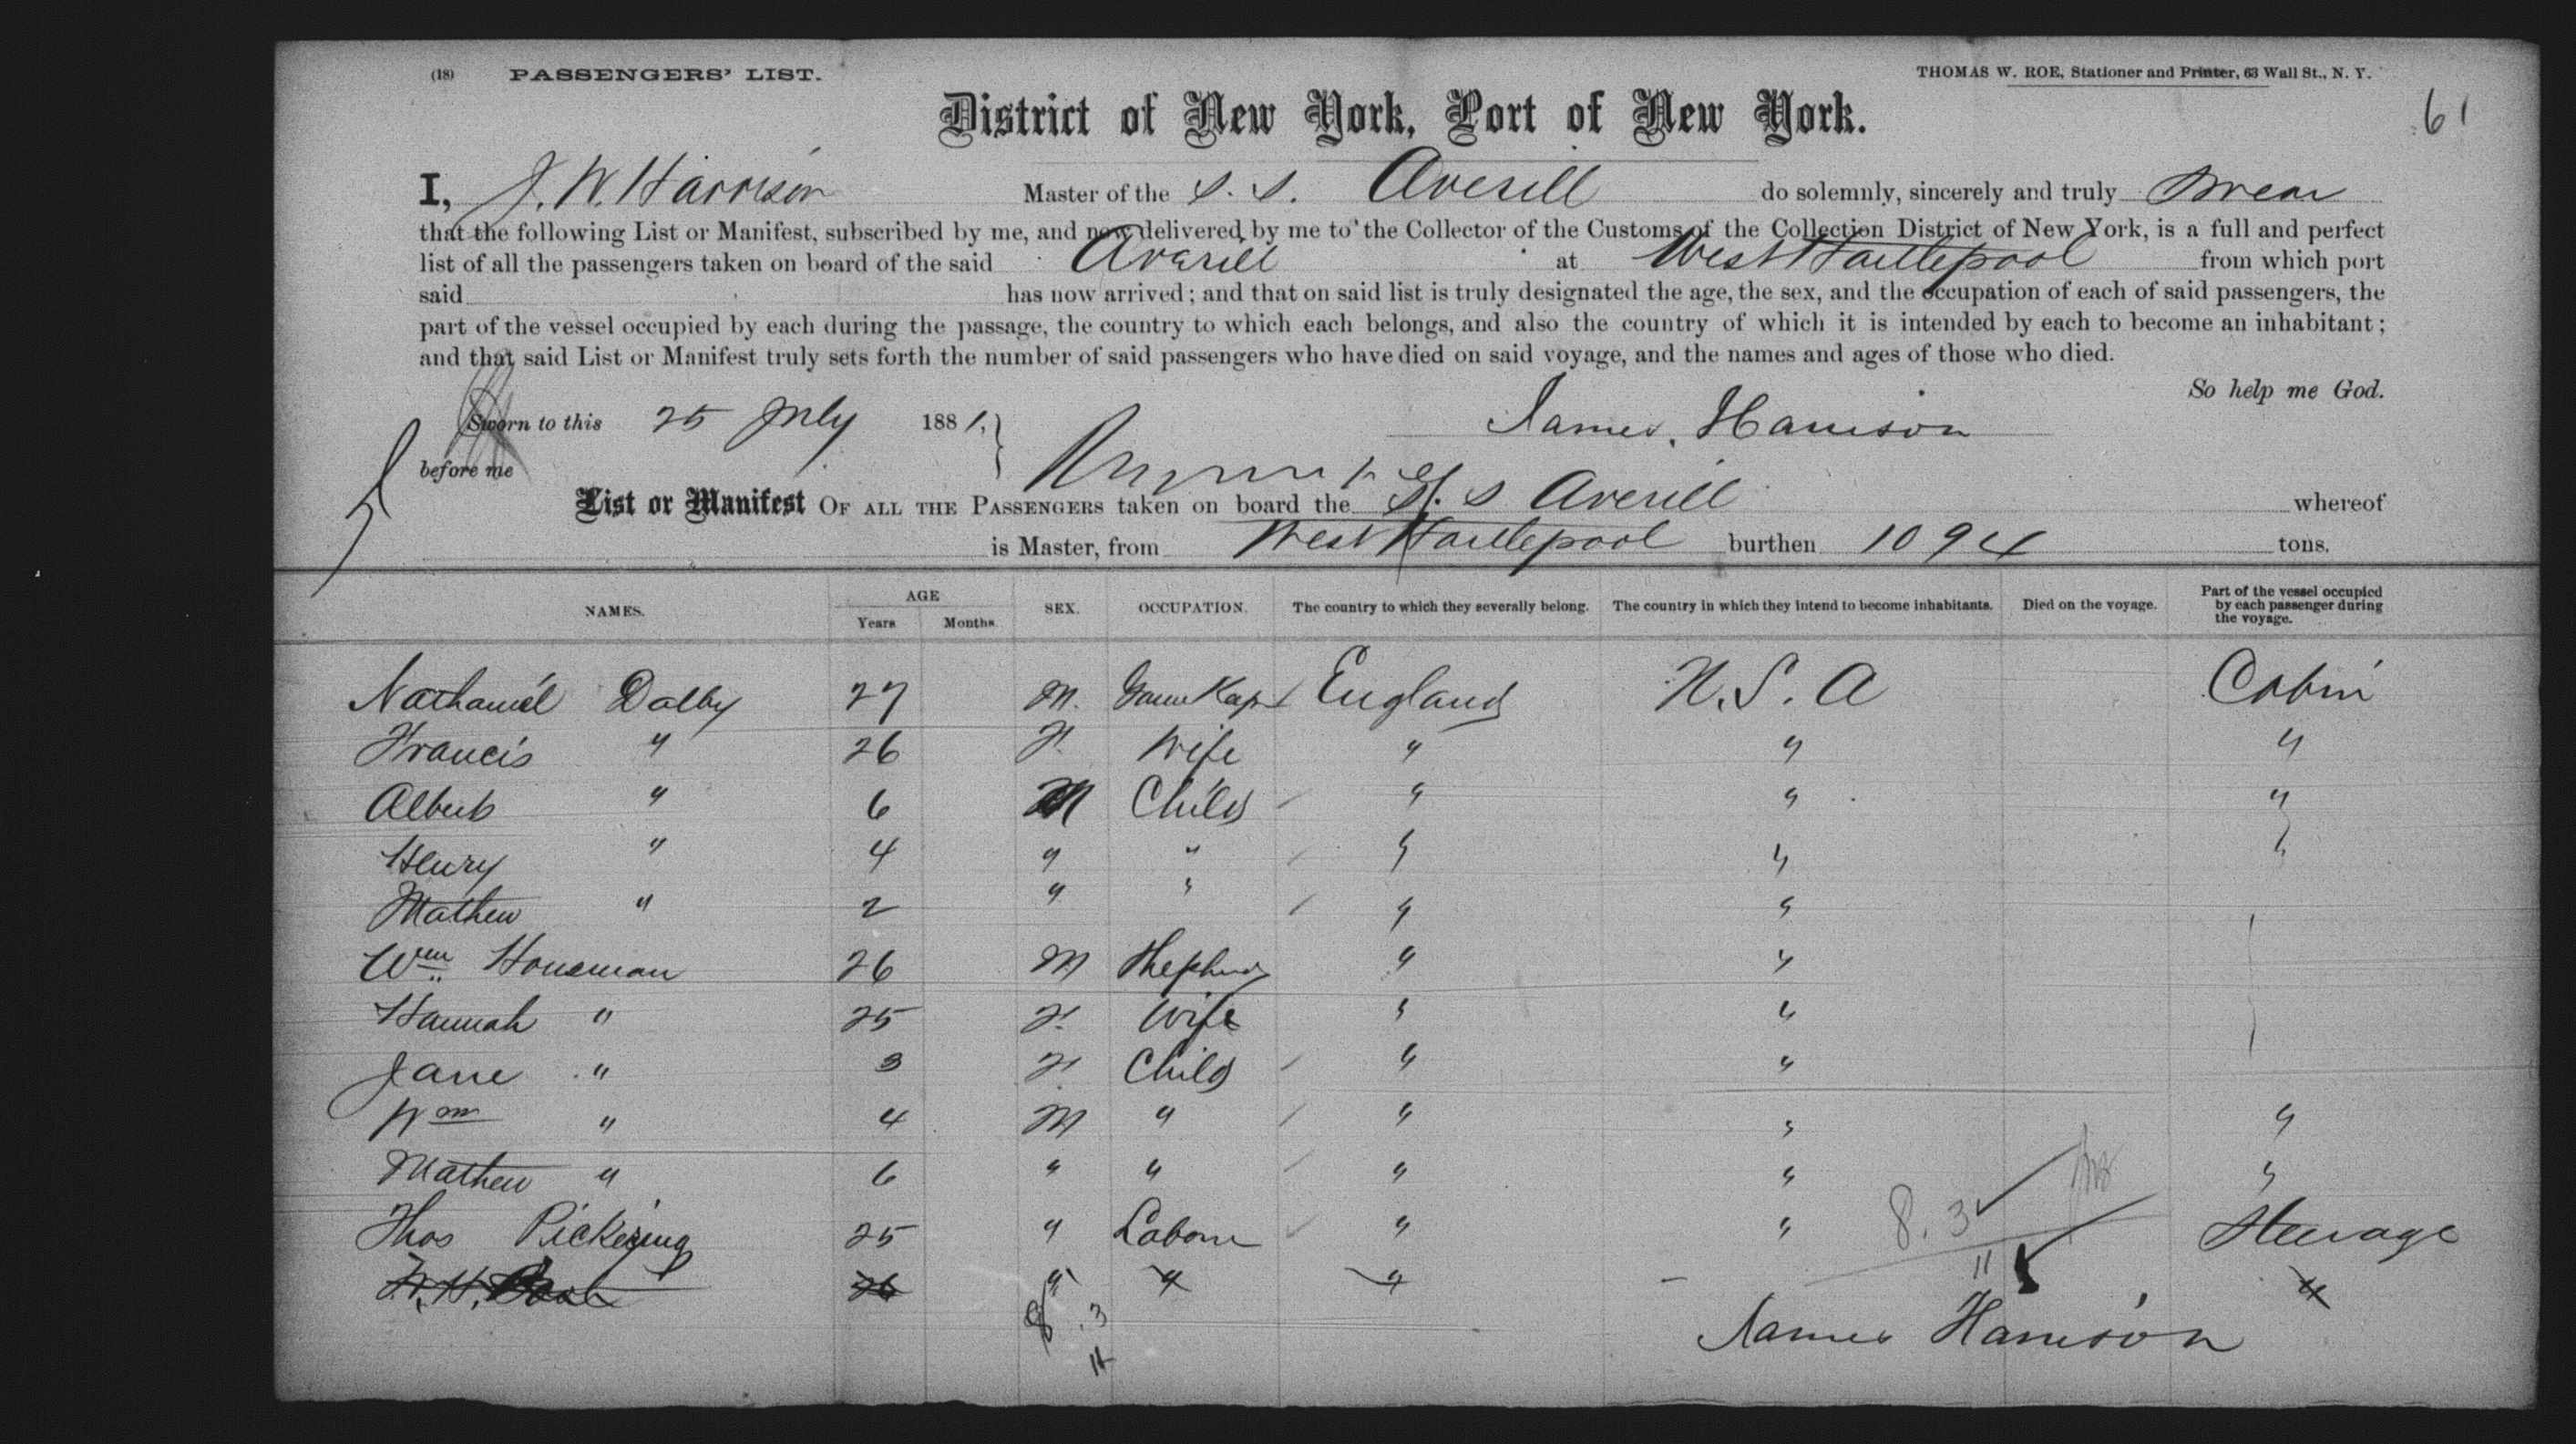 (18) PASSENGERS' LIST. THOMAS W. ROE, Stationer and Printer, 63 Wall St., N. Y.
61
District of New York, Port of New York.
I, J. W. Harrison Master of the S. S. Averill do solemnly, sincerely and truly swear
that the following List or Manifest, subscribed by me, and now delivered by me to the Collector of the Customs of the Collection District of New York, is a full and perfect
list of all the passengers taken on board of the said Averill at West Hartlepool from which port
said has now arrived; and that on said list is truly designated the age, the sex, and the occupation of each of said passengers, the
part of the vessel occupied by each during the passage, the country to which each belongs, and also the country of which it is intended by each to become an inhabitant;
and that said List or Manifest truly sets forth the number of said passengers who have died on said voyage, and the names and ages of those who died.
So help me God.
Sworn to this 25 July 1881, James Harrison
before me
List or Manifest OF ALL THE PASSENGERS taken on board the S. S Averill whereof
is Master, from West Hartlepool burthen 1094 tons.
NAMES. AGE Years Months. SEX. OCCUPATION. The country to which they severally belong. The country in which they intend to become inhabitants. Died on the voyage. Part of the vessel occupied by each passenger during the voyage.
Nathaniel Dalby 27 M. England U. S. A Cabin
Francis " 26 F. Wife " " "
Albert " 6 M Child " " "
Henry " 4 " " " " "
Mathew " 2 " " " "
Wm Houseman 26 M Shepherd " "
Hannah " 25 F. Wife " "
Jane " 3 F. Child " "
Wm " 4 M " " " "
Mathew " 6 " " " " "
Thos Pickering 25 " Labour " " Steerage
8. 3
11
26 " " " "
8. 3
11
James Harrison